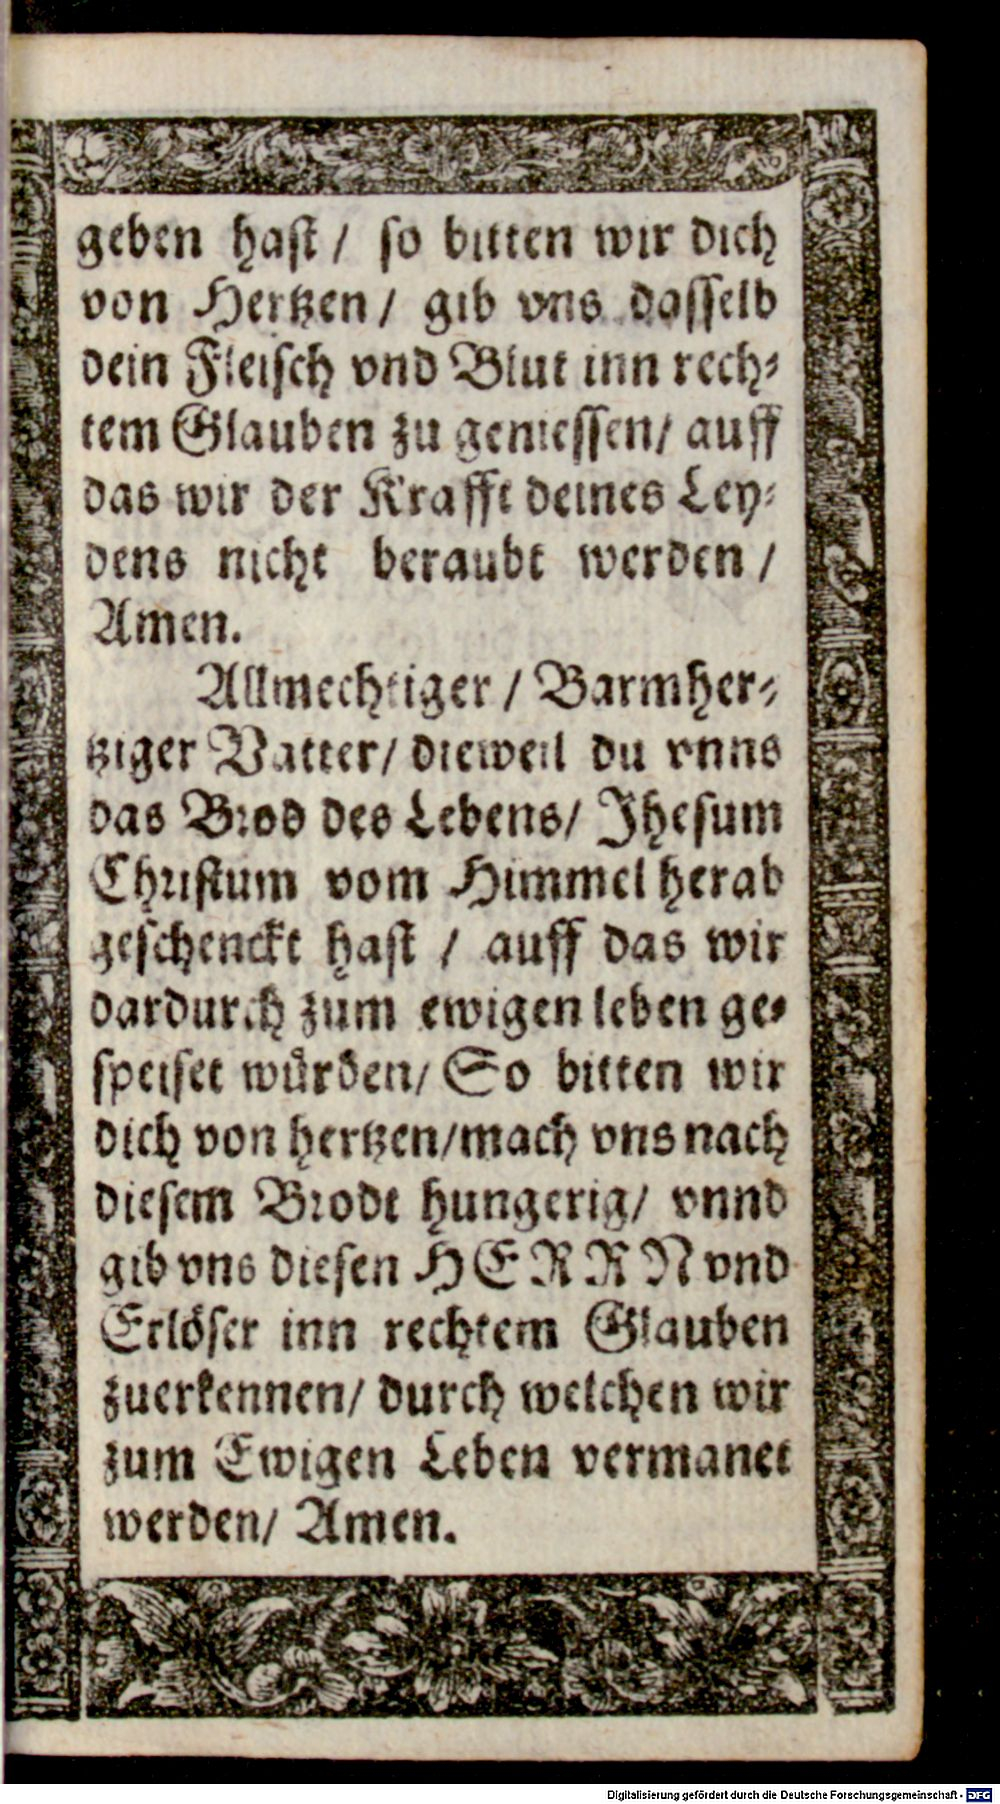 geben haſt / ſo bitten wir dich
von Hertzen / gib vns daſſelb
dein Fleiſch vnd Blut inn rech⸗
tem Glauben zu genieſſen / auff
das wir der Krafft deines Ley⸗
dens nicht beraubt werden /
Amen.
Allmechtiger / Barmher⸗
tziger Vatter / dieweil du vnns
das Brod des Lebens / Jheſum
Chriſtum vom Himmel herab
geſchenckt haſt / auff das wir
dardurch zum ewigen leben ge⸗
ſpeiſet wuͤrden / So bitten wir
dich von hertzen / mach vns nach
dieſem Brodt hungerig / vnnd
gib vns dieſen HERRN vnd
Erloͤſer inn rechtem Glauben
zuerkennen / durch welchen wir
zum Ewigen Leben vermanet
werden / Amen.
Digitalisierung gefördert durch die Deutsche Forschungsgemeinschaft - DFG